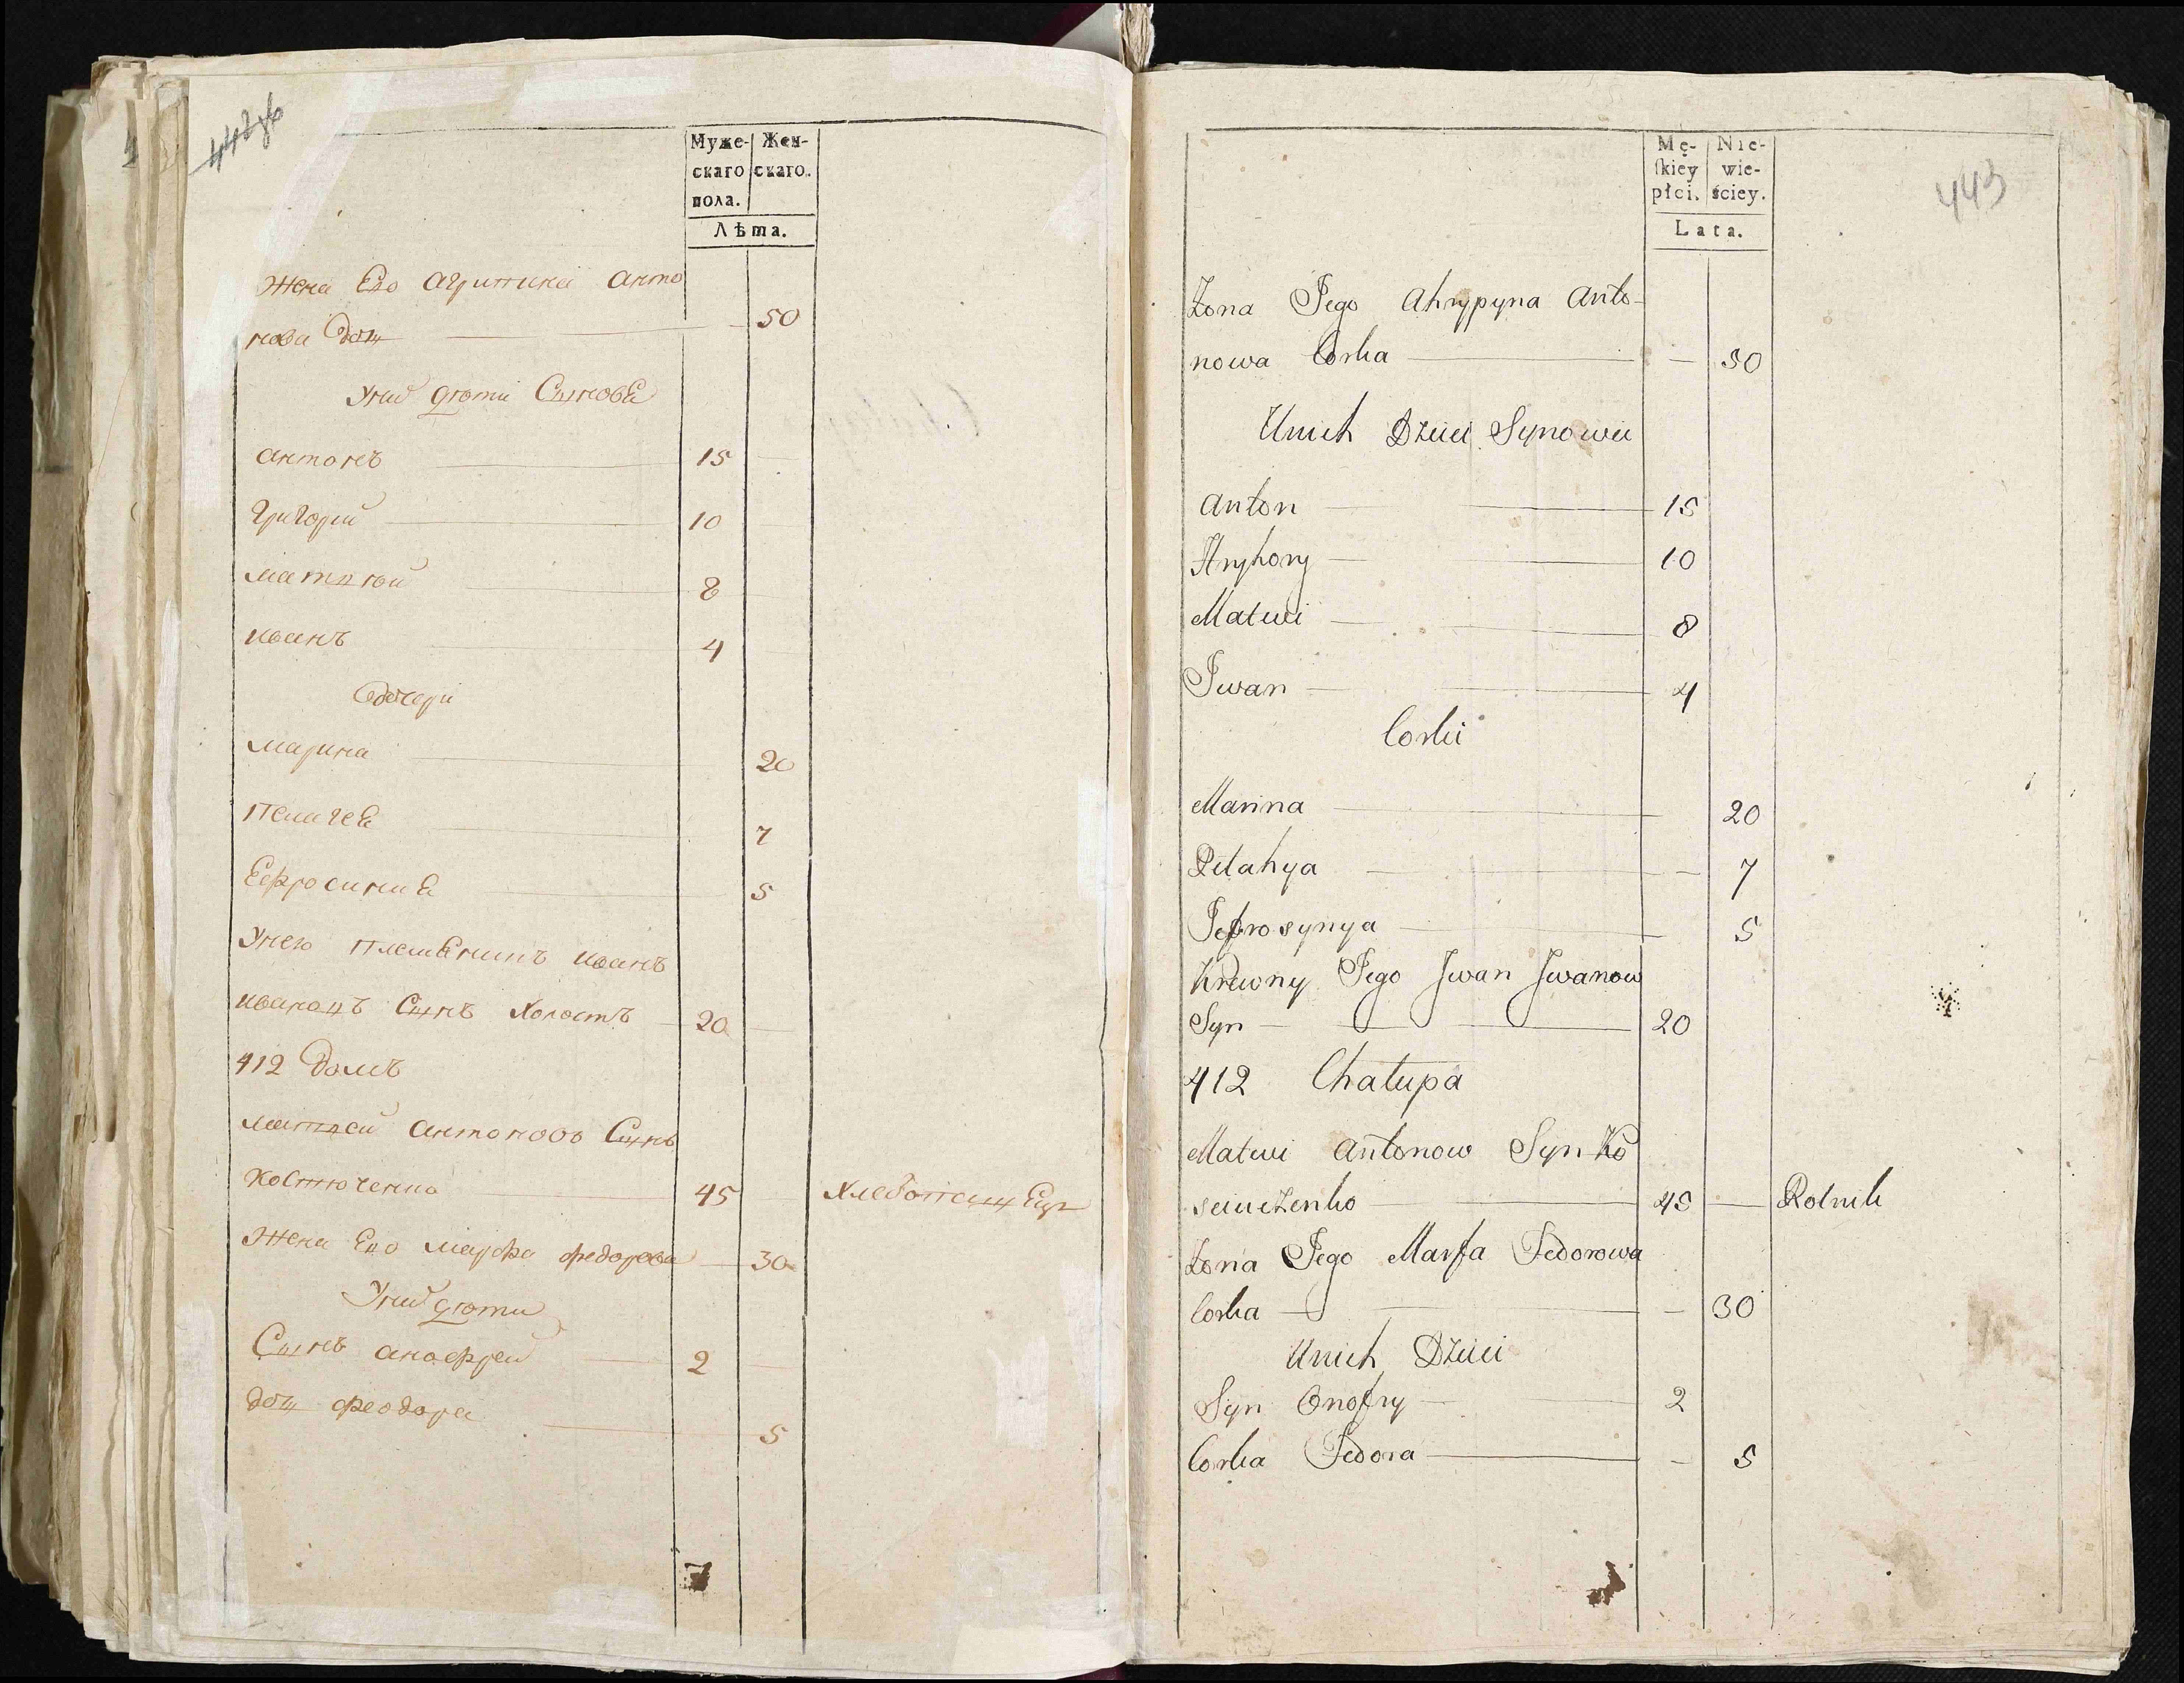 442зв
Муже- Жен-
скаго скаго.
пола.
Лѣта.
жена Его агрипина анто
нова дощ 50
Уних дѣти Сыновя
антонъ 15
григорий 10
матвѣй 8
иванъ 4
дочери
марина 20
пелагея 7
Ефросиния 5
Унего племянинъ иванъ
ивановъ Сынъ холостъ 20
412 домъ
матвей антоновъ Сынъ
костюченко 45 хлебопашец
жена Его марфа федорова 30
Уних дѣти
Сынъ анофрей 2
дощ феодора 5
443
Mę- Nie-
ſkiey wie-
płci. ściey.
Lata.
Żona Jego Ahrypyna Anto-
nowa Corka 50
Unich Dzieci Synowie
Anton 15
Hryhory 10
Matwi 8
Jwan 4
Corki
Marina 20
Pelahya 7
Jefrosynya 5
Krewny Jego Jwan Jwanow
Syn 20
412 Chałupa
Matwi Antonow Syn Ko
45 Rolnik
Żona Jego Marfa Fedorowa
Corka 30
Unich Dzieci
Syn Onofry 2
Corka Fedora 5